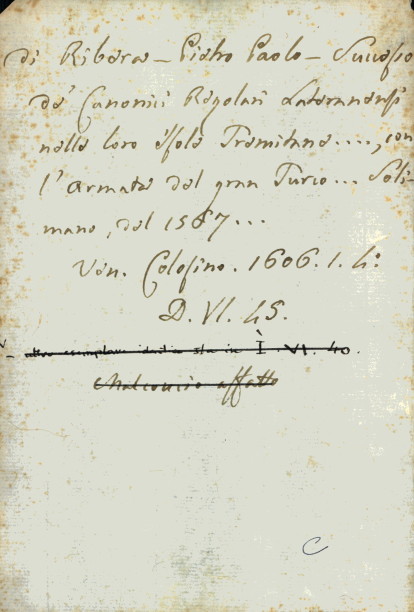 di Ribera - Pietro Paolo - Successo
de' Canonici Regolari Lateranensi
nelle loro Isole Tremitane ...., con
l'armata del gran Turco ... Soli-
mano, del 1567 ...
Ven. Colosino. 1606. 1. 4°
D. VI. 45.
altro esemplare sta in I. VI. 40.
Malconcio affatto
C